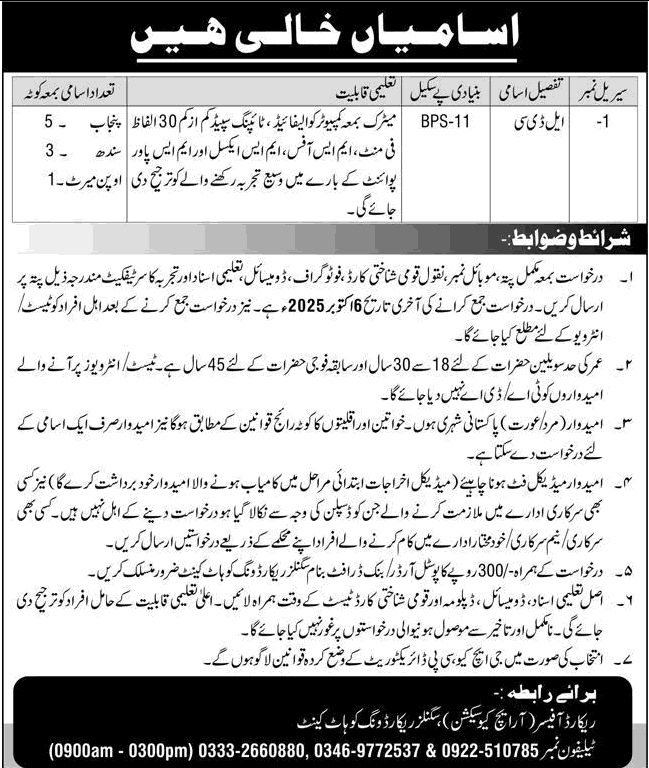 اسامیاں خالی ھیں
سیریل نمبر تفصیل اسامی بنیادی پے سکیل تعلیمی قابلیت تعداد اسامی بمعہ کوٹہ
1- ایل ڈی سی BPS-11 میٹرک بمعہ کمپیوٹر کوالیفائیڈ، ٹائپنگ سپیڈ کم از کم 30 الفاظ پنجاب ۔ 5
فی منٹ، ایم ایس آفس، ایم ایس ایکسل اور ایم ایس پاور سندھ ۔ 3
پوائنٹ کے بارے میں وسیع تجربہ رکھنے والے کو ترجیح دی اوپن میرٹ۔ 1
جائے گی۔
شرائط و ضوابط:-
۱۔ درخواست بمعہ مکمل پتہ، موبائل نمبر، نقول قومی شناختی کارڈ، فوٹوگراف، ڈومیسائل، تعلیمی اسناد اور تجربہ کا سرٹیفکیٹ مندرجہ ذیل پتہ پر
ارسال کریں۔ درخواست جمع کرانے کی آخری تاریخ 6 اکتوبر 2025ء ہے۔ نیز درخواست جمع کرنے کے بعد اہل افراد کو ٹیسٹ/
انٹرویو کے لئے مطلع کیا جائے گا۔
۲۔ عمر کی حد سویلین حضرات کے لئے 18 سے 30 سال اور سابقہ فوجی حضرات کے لئے 45 سال ہے۔ ٹیسٹ/ انٹرویوز پر آنے والے
امیدواروں کو ٹی اے/ ڈی اے نہیں دیا جائے گا۔
۳۔ امیدوار (مرد/عورت) پاکستانی شہری ہوں۔ خواتین اور اقلیتوں کا کوٹہ رائج قوانین کے مطابق ہوگا نیز امیدوار صرف ایک اسامی کے
لئے درخواست دے سکتا ہے۔
۴۔ امیدوار میڈیکل فٹ ہونا چاہئیے (میڈیکل اخراجات ابتدائی مراحل میں کامیاب ہونے والا امیدوار خود برداشت کرے گا) نیز کسی
بھی سرکاری ادارے میں ملازمت کرنے والے جن کو ڈسپلن کی وجہ سے نکالا گیا ہو درخواست دینے کے اہل نہیں ہیں۔ کسی بھی
سرکاری/ نیم سرکاری/ خود مختار ادارے میں کام کرنے والے افراد اپنے محکمے کے ذریعے درخواستیں ارسال کریں۔
۵۔ درخواست کے ہمراہ -/300 روپے کا پوسٹل آرڈر/ بنک ڈرافٹ بنام سگنلز ریکارڈ ونگ کوہاٹ کینٹ ضرور منسلک کریں۔
۶۔ اصل تعلیمی اسناد، ڈومیسائل، ڈپلومہ اور قومی شناختی کارڈ ٹیسٹ کے وقت ہمراہ لائیں۔ اعلیٰ تعلیمی قابلیت کے حامل افراد کو ترجیح دی
جائے گی۔ نامکمل اور تاخیر سے موصول ہونیوالی درخواستوں پر غور نہیں کیا جائے گا۔
۷۔ انتخاب کی صورت میں جی ایچ کیو، سی پی ڈائریکٹوریٹ کے وضع کردہ قوانین لاگو ہوں گے۔
برائے رابطہ :-
ریکارڈ آفیسر (آر ایچ کیو سیکشن)، سگنلز ریکارڈ ونگ کوہاٹ کینٹ
ٹیلیفون نمبر 0922-510785 & 0346-9772537 ,0333-2660880 (0900am - 0300pm)